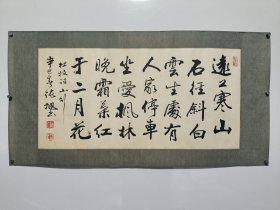 遠上寒山
石徑斜白
雲生處有
人家停車
坐愛楓林
晚霜葉紅
于二月花
杜牧詩山行
辛巳